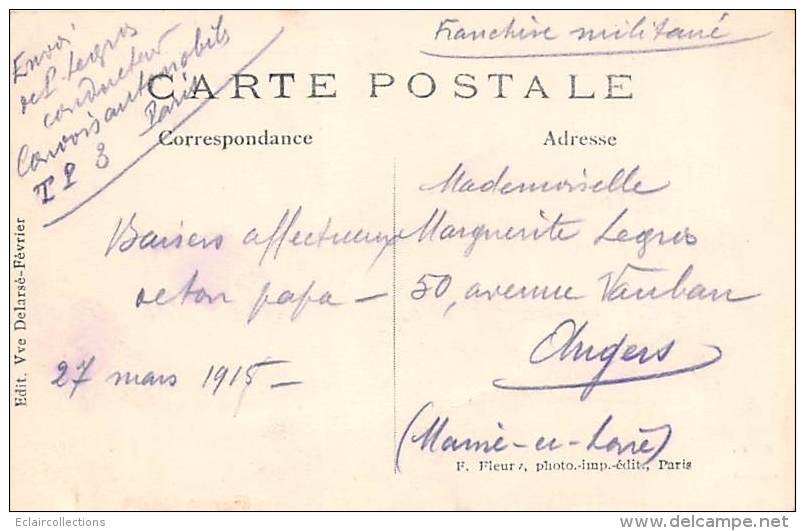 Envoi
de P. Legros
conducteur
Convois automobiles
T P 3 Paris
Franchise militaire
CARTE POSTALE
Correspondance
Adresse
Baisers affectueux
de ton papa —
27 mars 1915 —
Mademoiselle
Marguerite Legros
50, avenue Vauban
Angers
(Maine-et-Loire)
F. Fleury, photo.-imp.-édit., Paris
Edit. Vve Delarsé-Février
Eclaircollections
delcampe.net